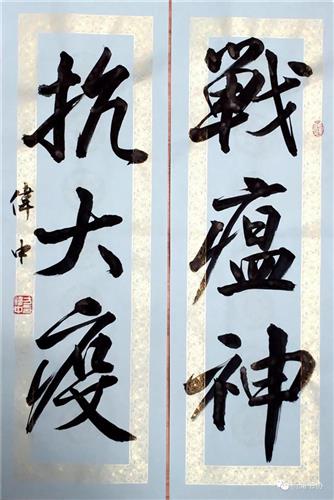 戰瘟神
抗大疫
偉中